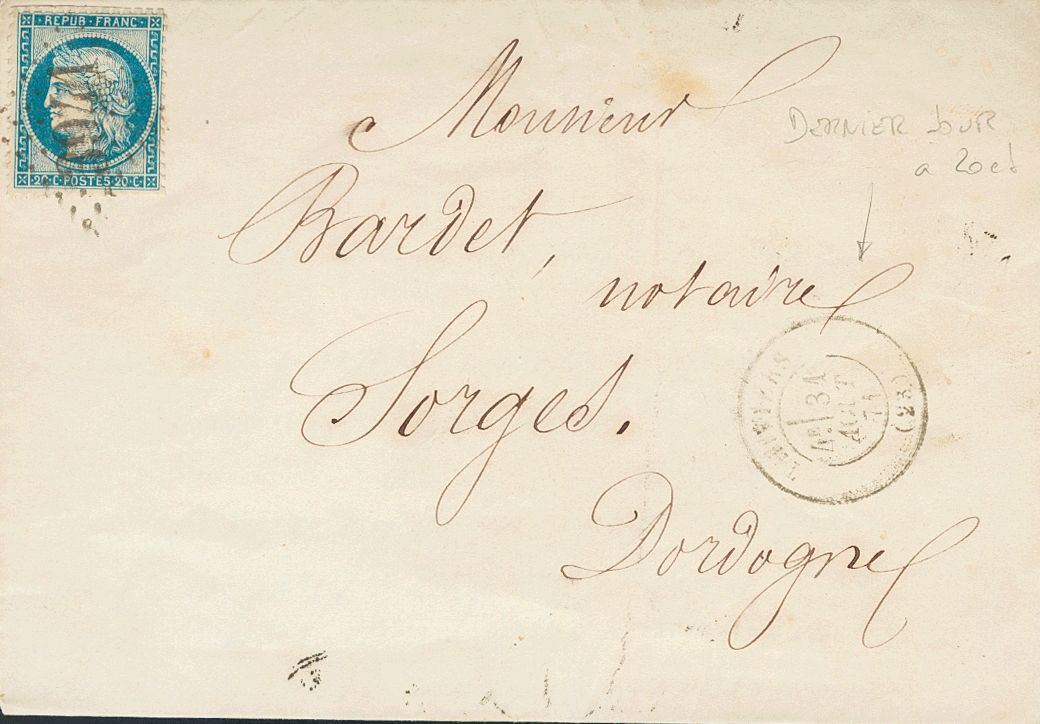 REPUB · FRANC ·
20 · C · POSTES 20 · C ·
a Monsieur
DERNIER JOUR
a 20ct
Bardet,
notaire
Sorges.
THIVIERS (23)
31
AOUT
71
Dordogne